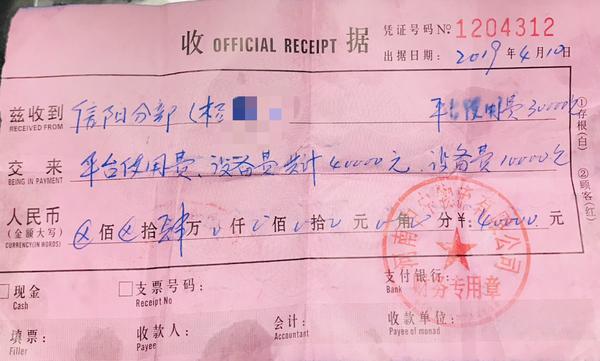 收 OFFICIAL RECEIPT 据
凭证号码№ 1204312
出据日期: 2019年4月10日
兹收到 信阳分部 平台使用费30000元
RECEIVED FROM
交来 平台使用费、设备费共计40000元、设备费10000元
BEING IN PAYMENT
人民币 ⊗佰⊗拾肆万0仟0佰0拾0元0角 分¥: 40000元
(金额大写)
CURRENCY(IN WORDS)
①存根(白)
②顾客(红)
河南 有限公司
财务专用章
□现金 □支票号码: 支付银行:
Cash Receipt No Bank
填票: 收款人: 会计: 收款单位:
Filler Payee Accountant Payee of monad